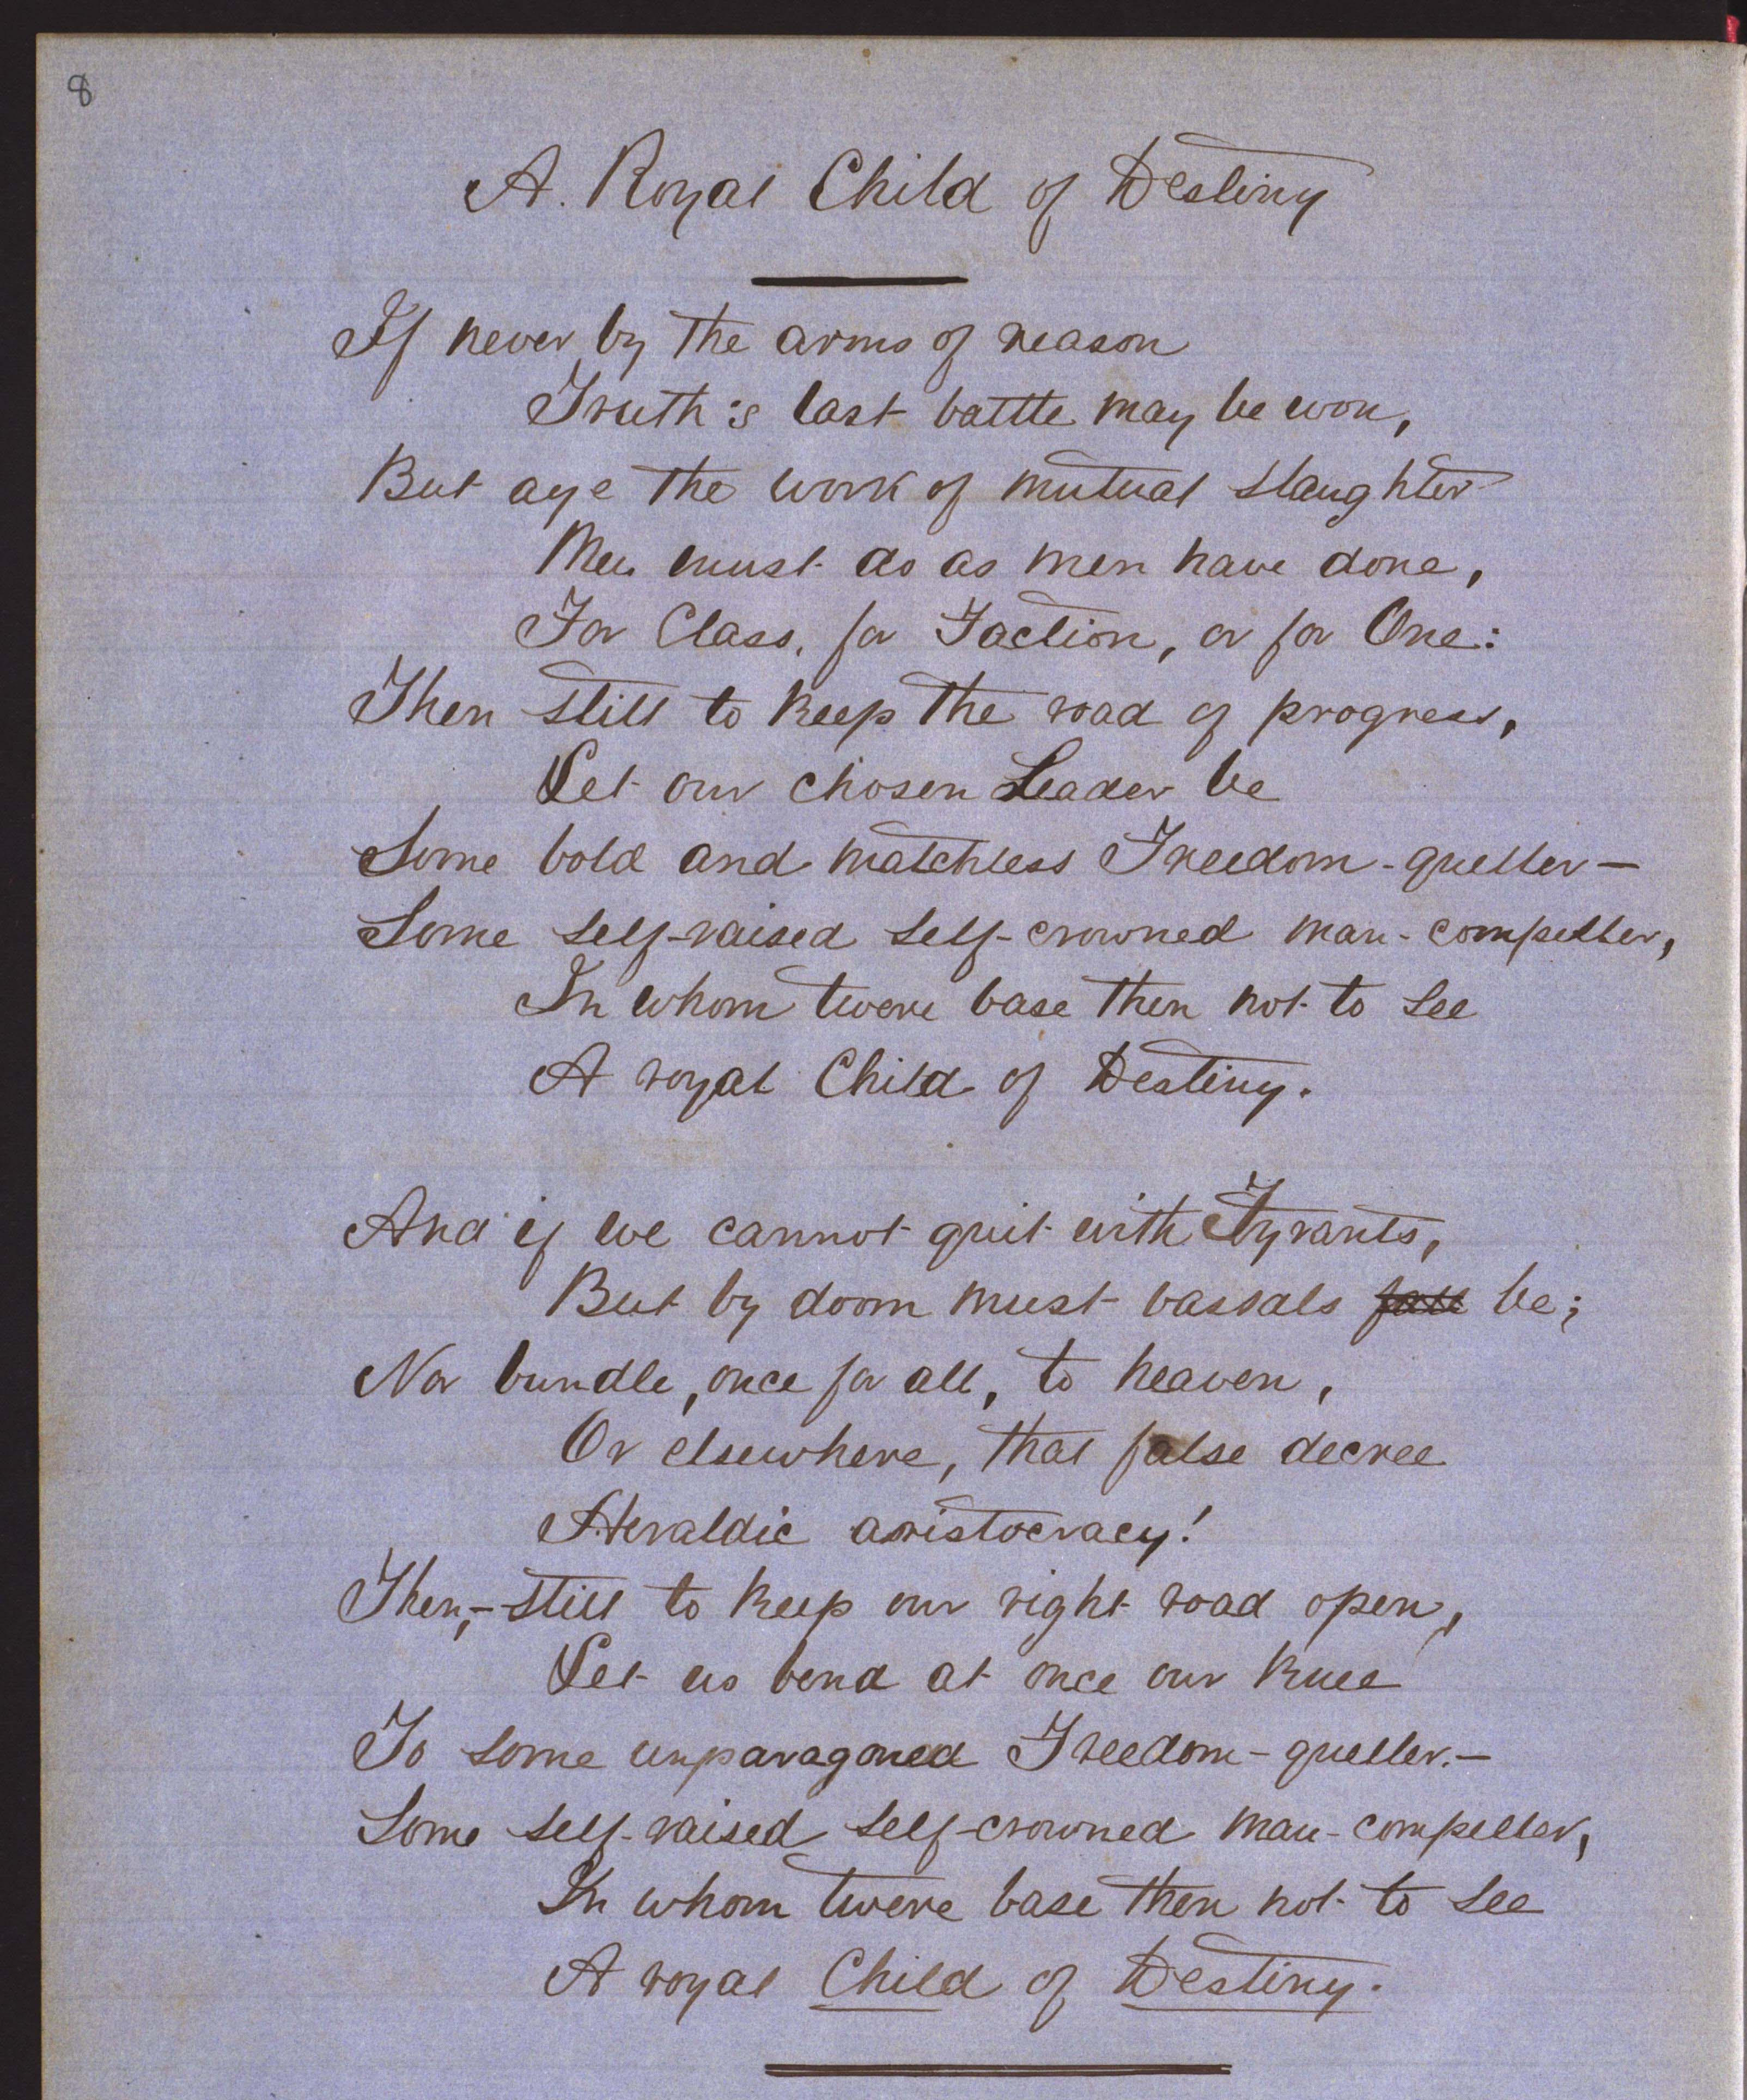 8
A. Royal Child of Destiny
If never by the arms of reason
Truth's last battle may be won,
But aye the work of mutual slaughter
Men must do as men have done,
For Class, for Faction, or for One:
Then still to keep the road of progress,
Let our chosen Leader be
Some bold and matchless Freedom-queller—
Some self-raised self-crowned man-compeller,
In whom twere base then not to see
A royal Child of Destiny.
And if we cannot quit with Tyrants,
But by doom must vassals be;
Nor bundle, once for all, to heaven,
Or elsewhere, that false decree
Heraldic aristocracy!
Then,—still to keep our right road open,
Let us bend at once our knee
To some unparagoned Freedom-queller.—
Some self-raised self-crowned man-compeller,
In whom twere base then not to see
A royal Child of Destiny.